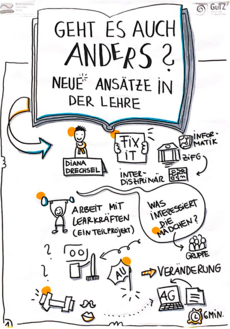 GUTZ
GEHT ES AUCH
ANDERS?
NEUE ANSÄTZE IN
DER LEHRE
DIANA
DRECHSEL
FIX
IT
INFOR-
MATIK
ZIFG
INTER-
DISZIPLINÄR
ARBEIT MIT
LEHRKRÄFTEN
(EIN TEILPROJEKT)
WAS
INTERESSIERT
DIE
MÄDCHEN?
GRUPPE
?
?
?
AU
VERÄNDERUNG
4G
6 MIN.